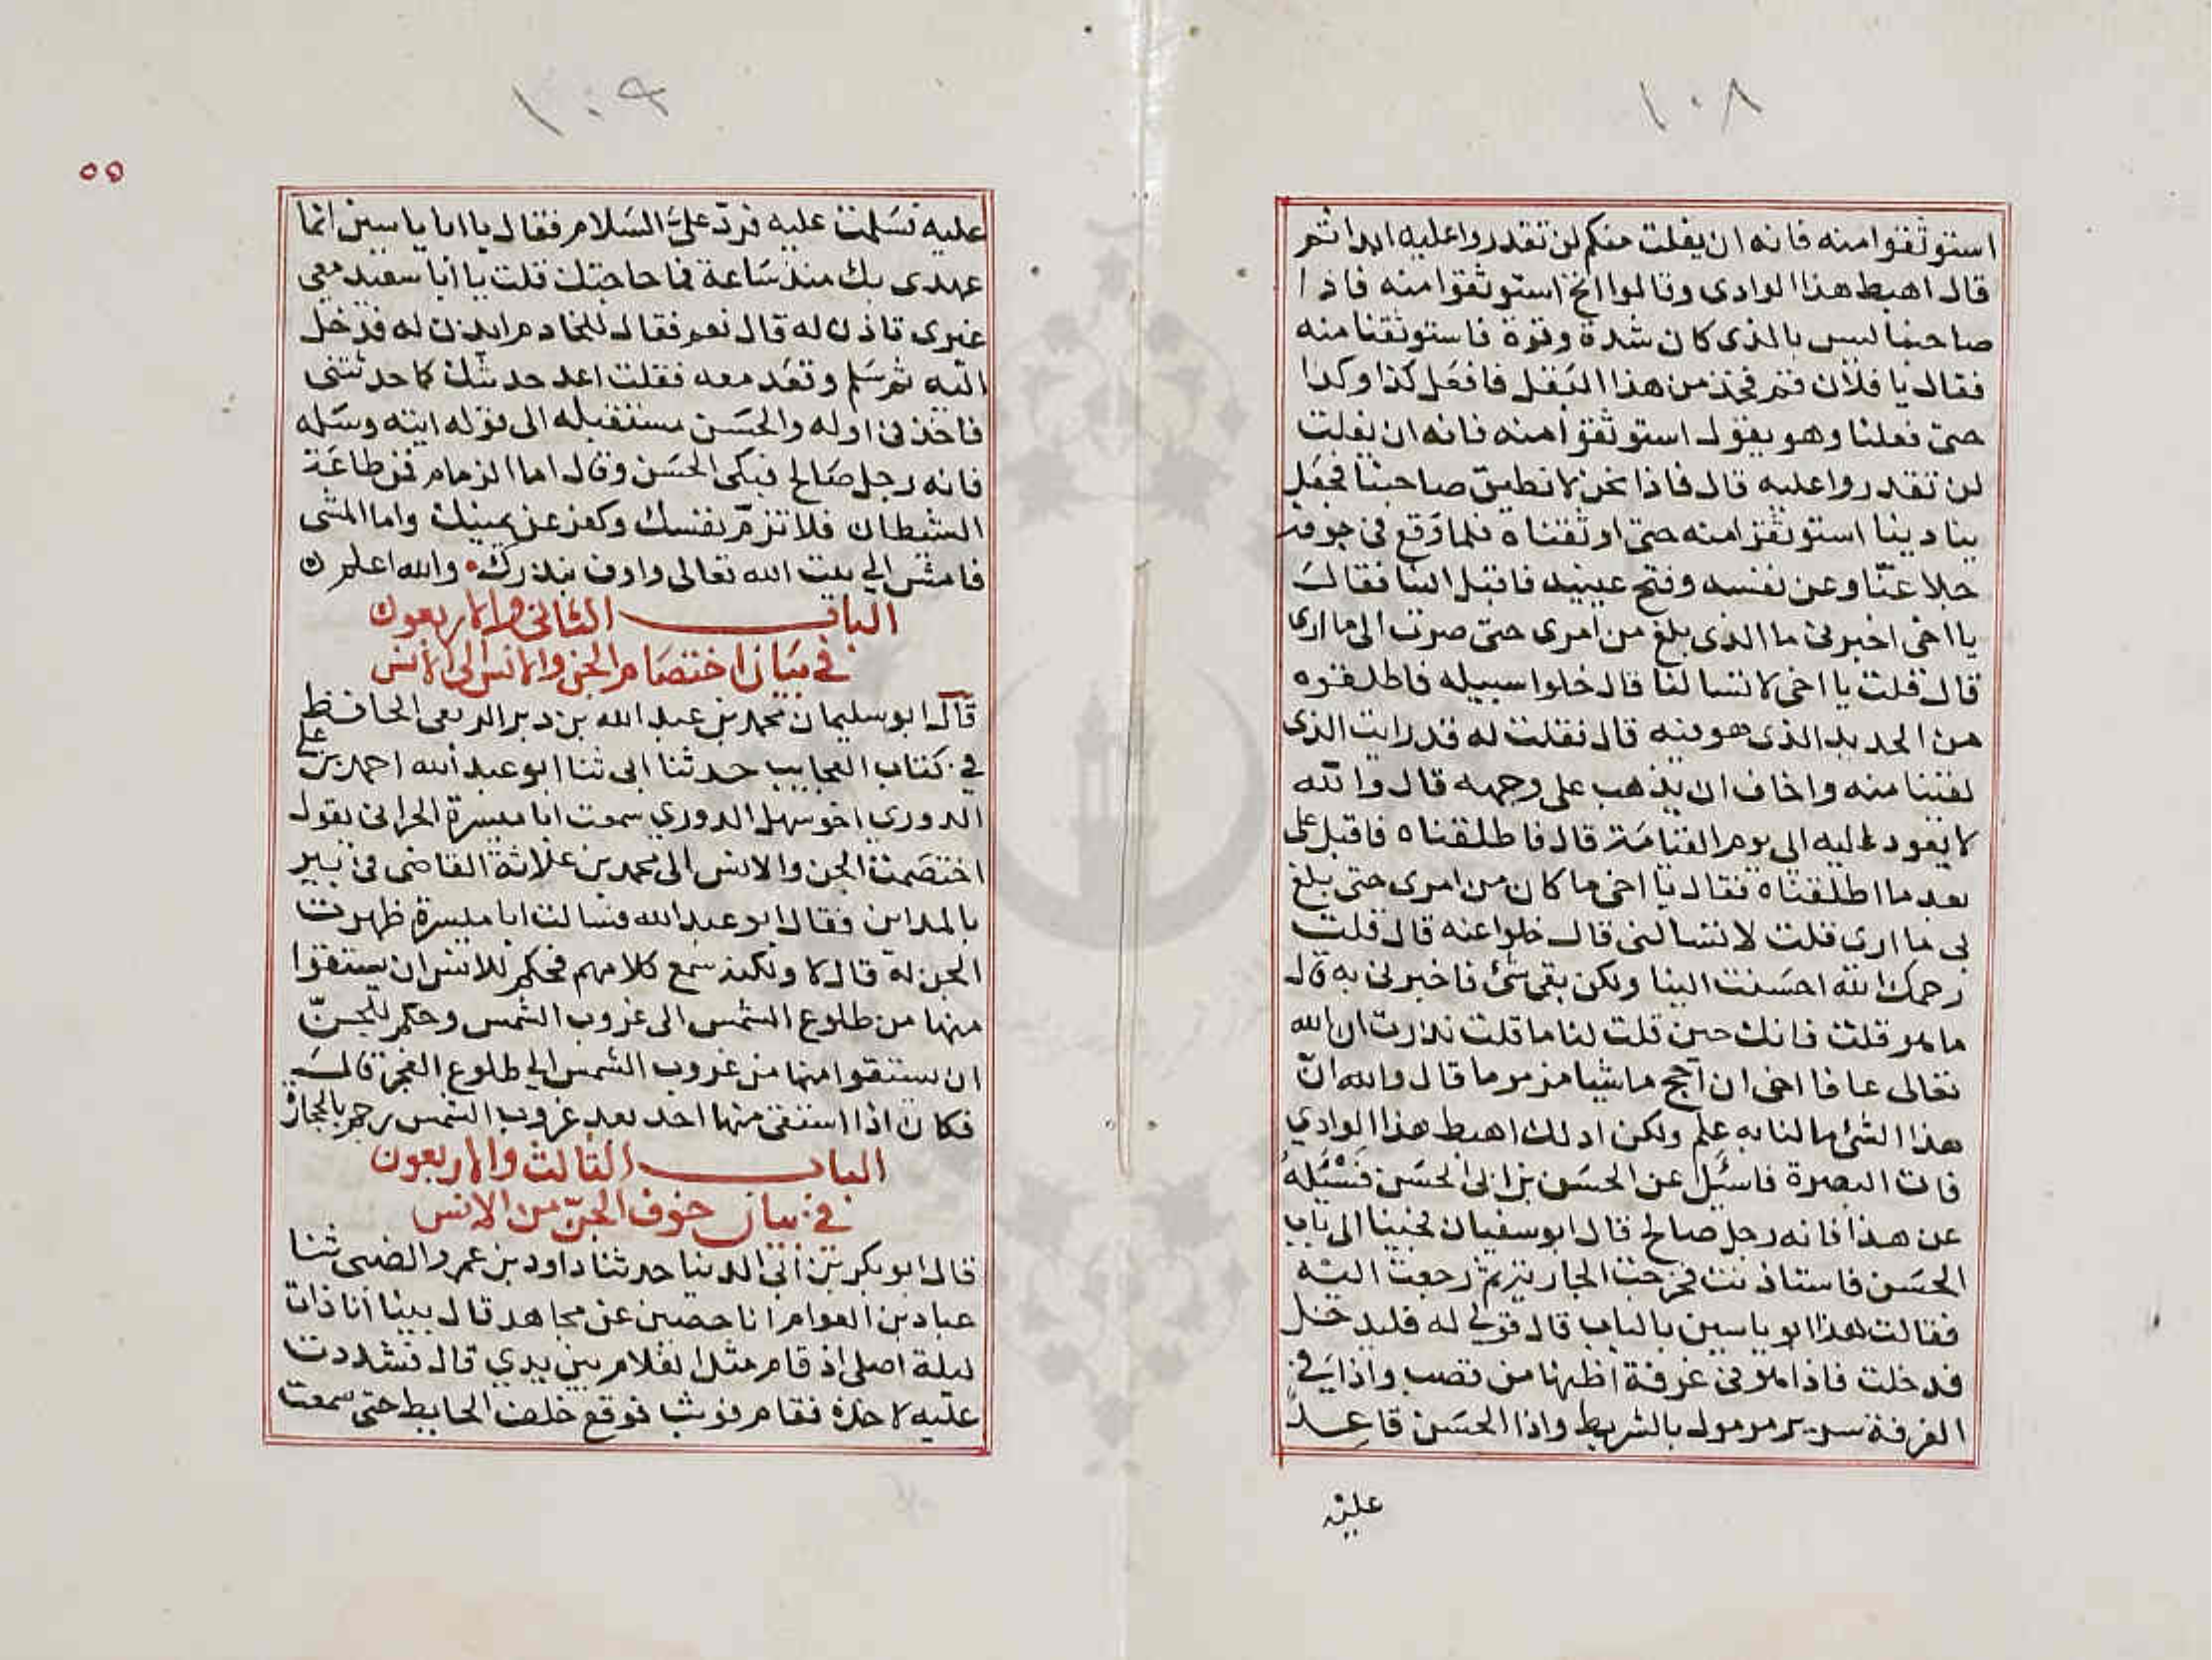 ١٠٨
استوثقوا منه فانه ان يفلت منكم لن تقدروا عليه ابدا ثم
قال اهبط هذا الوادى وقالوا استوثقوا منه فاذا
صاحبنا ليس بالذى كان شدة وقوة فاستوثقنا منه
فقال يا فلان قم فخذ من هذا البقل فافعل كذا وكذا
حتى فعلنا وهو يقول استوثقوا منه فانه ان يفلت
لن تقدروا عليه قال فاذا نحن لا نطيق صاحبنا فجعل
ينادينا استوثقوا منه حتى اوثقناه فلما وقع فى جوفه
جلا عنا وعن نفسه وفتح عينيه فاقبل الينا فقال
يا اخى اخبرنى ما الذى بلغ من امرى حتى صرت الى ما ارى
قال قلت يا اخى لا تسالنا قال خلوا سبيله فاطلقوه
من الحديد الذى هو فيه قال فقلت له قد رايت الذى
لقينا منه واخاف ان يذهب على وجهه قال والله
لا يعود عليه الى يوم القيامة قال فاطلقناه فاقبل على
بعد ما اطلقناه فقال يا اخى ما كان من امرى حتى بلغ
بى ما ارى قلت لا تسالنى قال خلوا عنه قال قلت
رحمك الله احسنت الينا ولكن بقى شئ فاخبرنى به قال
ما هو قلت فانك حين قلت لنا ما قلت نذرت ان الله
تعالى عافا اخى ان احج ماشيا مزموما قال والله ان
هذا الشئ ما لنا به علم ولكن ادلك اهبط هذا الوادي
فات البصرة فاسئل عن الحسن بن ابى الحسن فسئله
عن هذا فانه رجل صالح قال ابو سفيان فجينا الى باب
الحسن فاستاذنت فخرجت الجارية ثم رجعت اليه
فقالت هذا ابو ياسين بالباب قال قولى له فليدخل
فدخلت فاذا هو فى غرفة اظنها من قصب واذا فى
الغرفة سرير مرمول بالشريط واذا الحسن قاعد
عليه
١٠٩
٥٥
عليه فسلمت عليه فرد على السلام فقال يا ابا ياسين انما
عهدى بك منذ ساعة فما حاجتك قلت يا ابا سعيد معى
غيرى تاذن له قال نعم فقال للخادم ايذن له فدخل
اليه ثم سلم وقعد معه فقلت اعد حديثك كما حدثتنى
فاخذ فى اوله والحسن مستقبله الى قوله ايته وسله
فانه رجل صالح فبكى الحسن وقال اما الزمام فمن طاعة
الشيطان فلا تزم نفسك وكفر عن يمينك واما المشى
فامش الى بيت الله تعالى واوف بنذرك والله اعلم
الباب الثانى والاربعون
فى بيان اختصام الجن والانس الى الانس
قال ابو سليمان محمد بن عبد الله بن دبر الربعى الحافظ
فى كتاب العجايب حدثنا ابى ثنا ابو عبد الله احمد بن على
الدورى اخو سهل الدوري سمعت ابا ميسرة الحرانى يقول
اختصمت الجن والانس الى محمد بن علاثة القاضى فى بير
بالمداين فقال ابو عبد الله فسالت ابا ميسرة ظهرت
الجن له قال لا ولكنه سمع كلامهم فحكم للانس ان يستقوا
منها من طلوع الشمس الى غروب الشمس وحكم للجن
ان يستقوا منها من غروب الشمس الى طلوع الفجر قال
فكان اذا استقى منها احد بعد غروب الشمس رجم بالحجارة
الباب الثالث والاربعون
فى بيان خوف الجن من الانس
قال ابو بكر بن ابى الدنيا حدثنا داود بن عمرو الضبى ثنا
عباد بن العوام انا حصين عن مجاهد قال بينا انا ذات
ليلة اصلى اذ قام مثل الغلام بين يدي قال فشددت
عليه لاخذه فقام فوثب فوقع خلف الحايط حتى سمعت